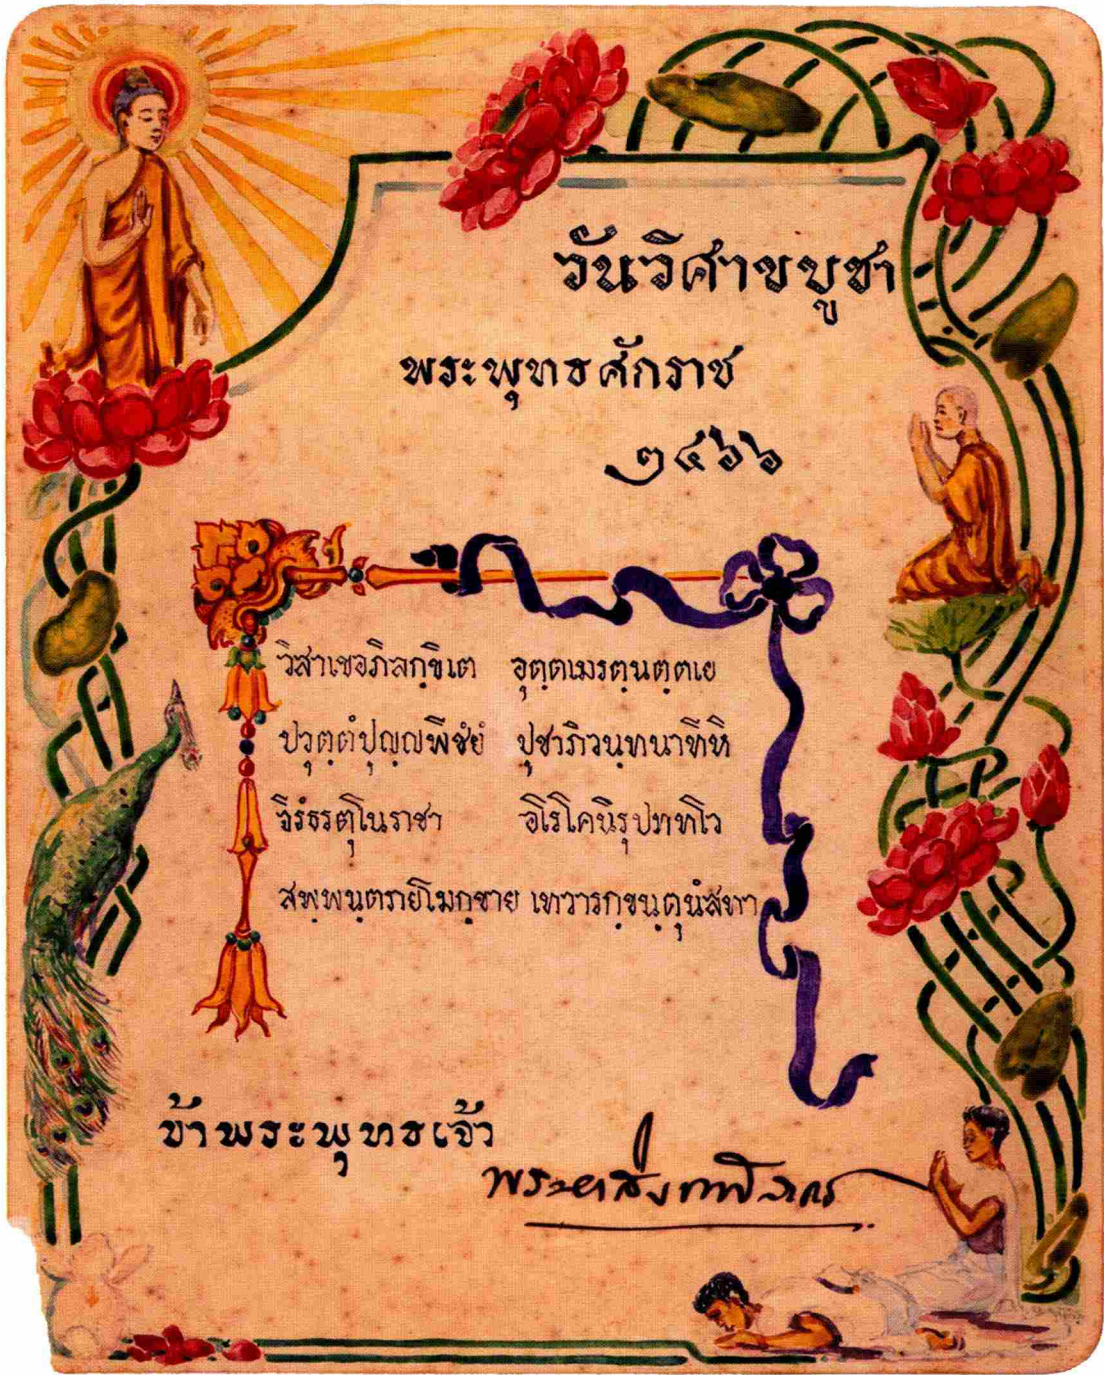 วันวิศาขบูชา
พระพุทธศักราช
๒๔๖๖
วิสาเขอภิลกฺขิเต อุตฺตเมรตฺนตฺตเย
ปวตฺตํปุญฺญพีชํยํ ปูชาภิวนฺทนาทีหิ
จิรํธรตุโนราชา อโรโคนิรุปททโว
สพฺพนฺตรายโมกฺขาย เทวารกฺขนฺตุนํสทา
ข้าพระพุทธเจ้า